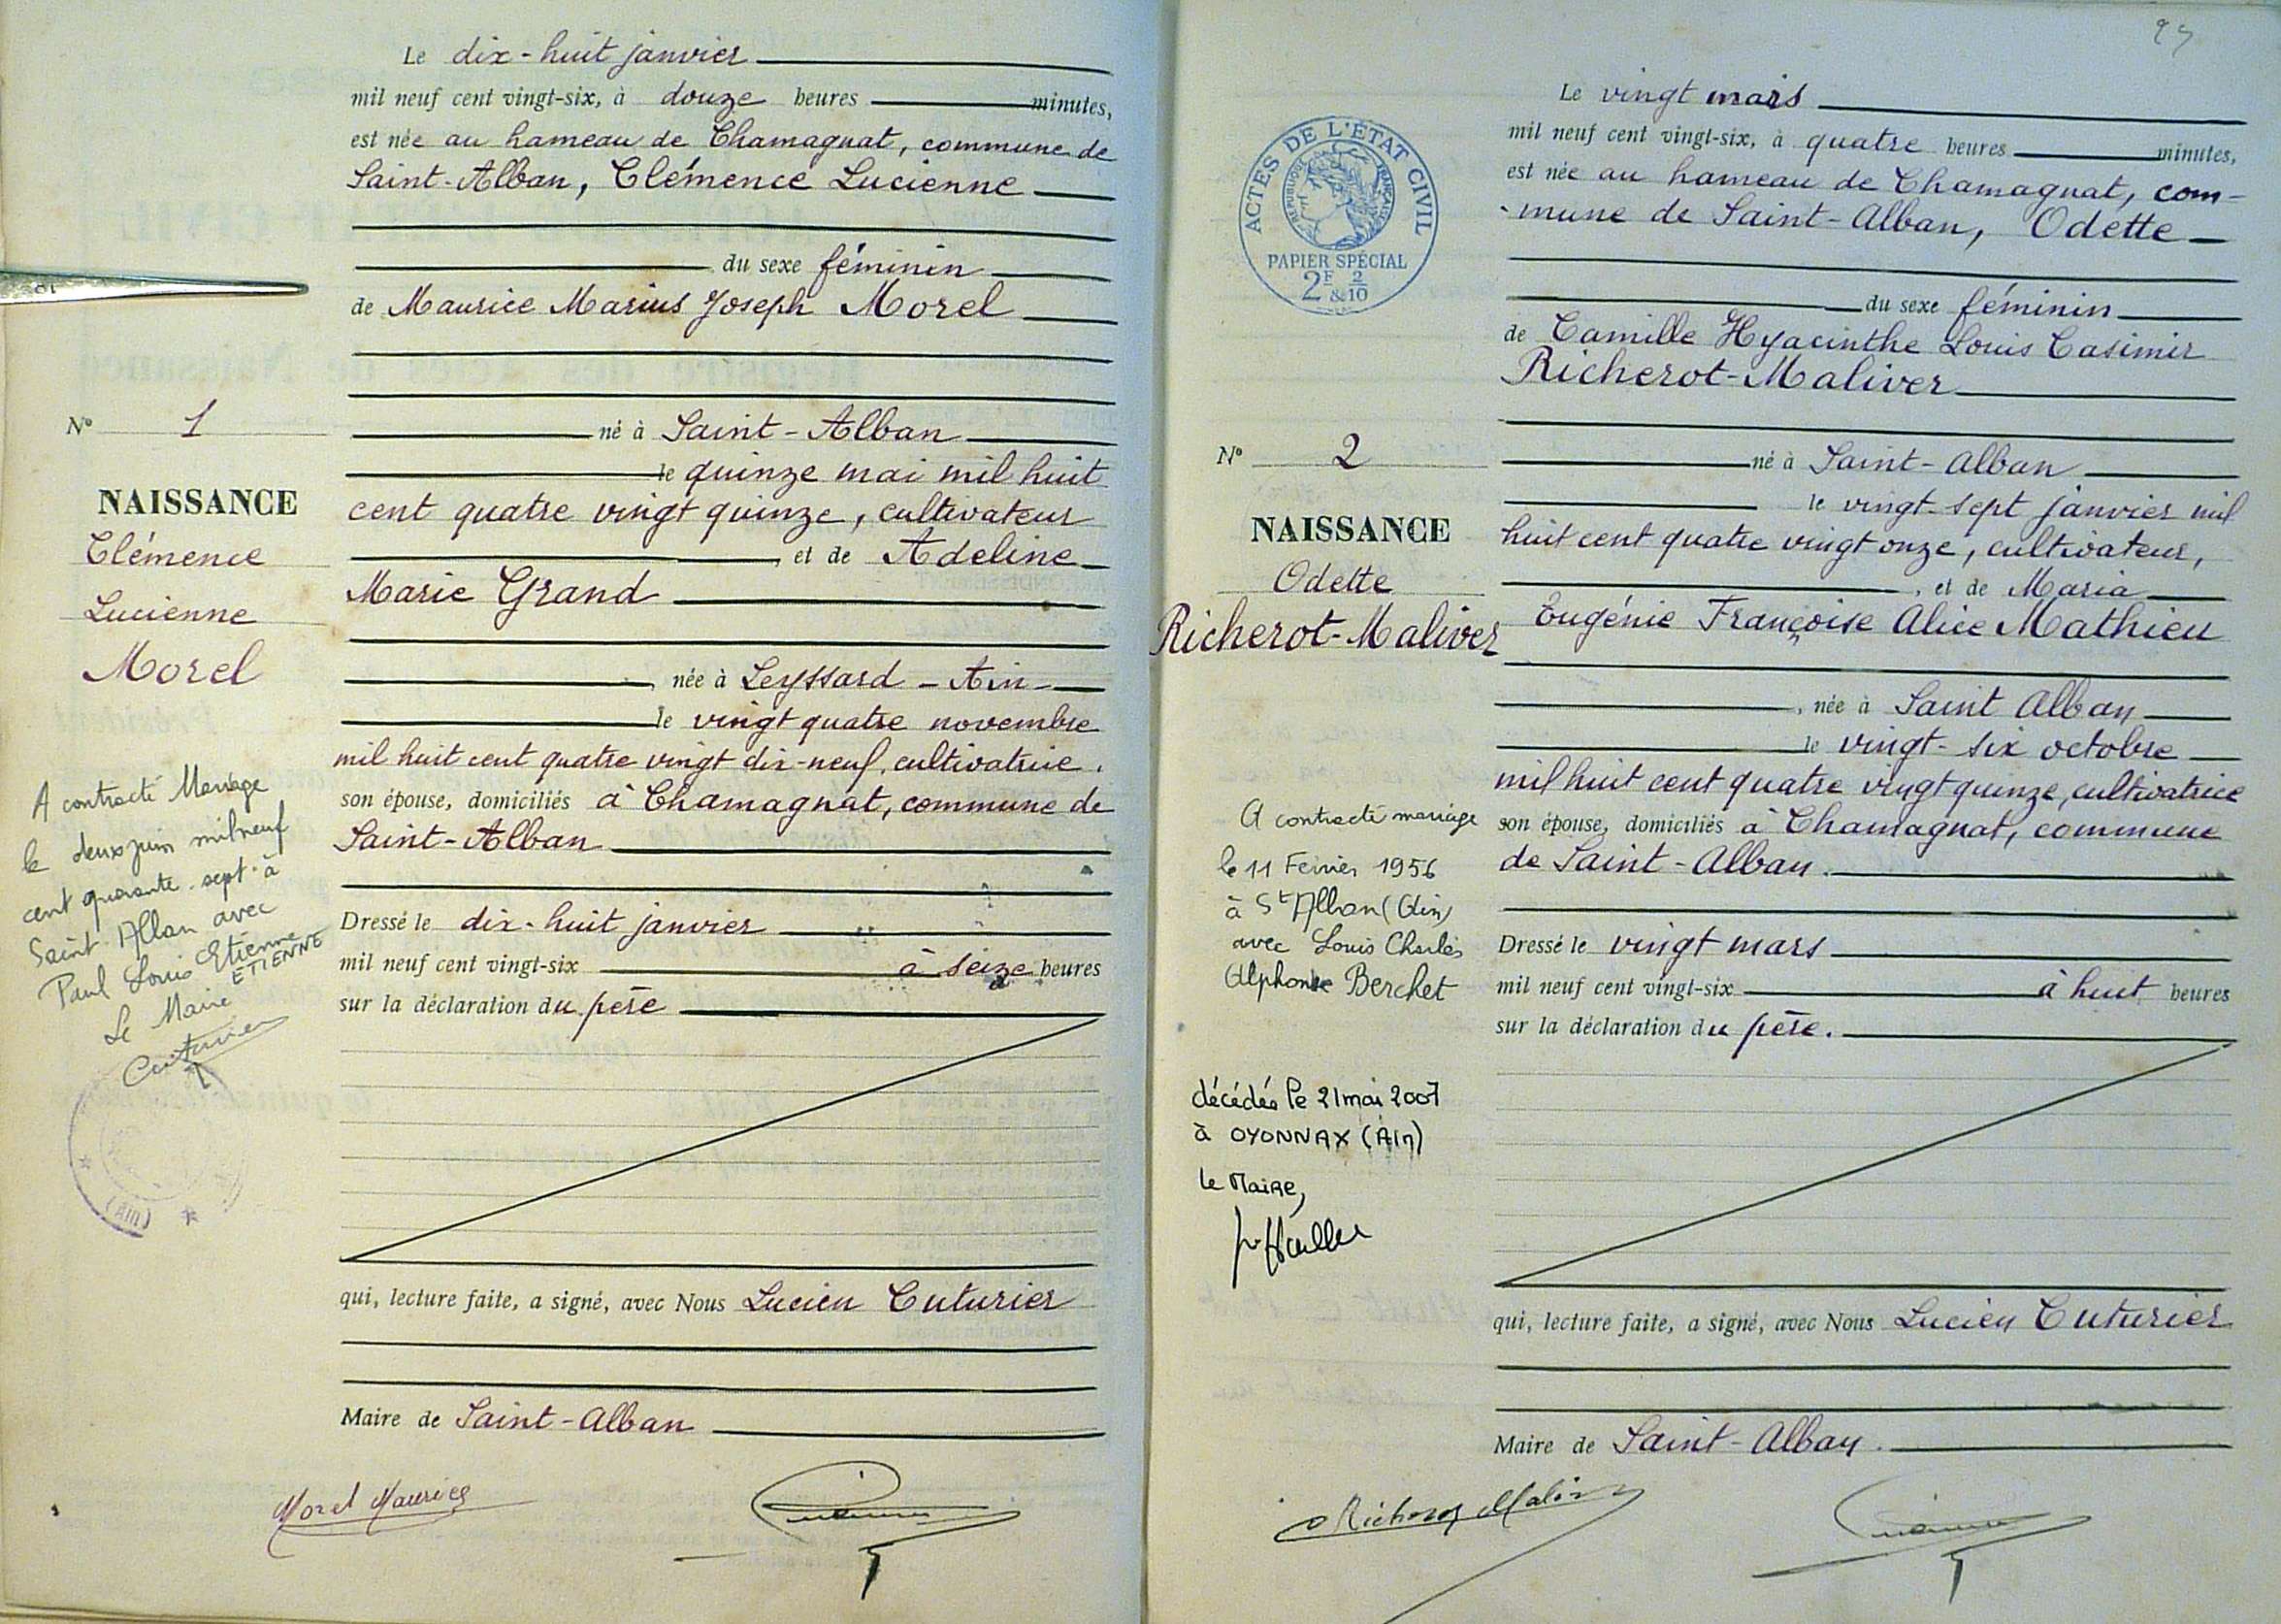 Le dix-huit janvier
mil neuf cent vingt-six, à douze heures minutes,
est née au hameau de Chamagnat, commune de
Saint-Alban, Clémence Lucienne
du sexe féminin
de Maurice Marius Joseph Morel
N° 1
né à Saint-Alban
le quinze mai mil huit
cent quatre vingt quinze, cultivateur
NAISSANCE
Clémence
Lucienne
Morel
, et de Adeline
Marie Grand
, née à Leyssard - Ain -
le vingt quatre novembre
mil huit cent quatre vingt dix-neuf, cultivatrice.
son épouse, domiciliés à Chamagnat, commune de
Saint-Alban
A contracté Mariage
le deux juin mil neuf
cent quarante-sept à
Saint-Alban avec
Paul Louis Etienne
ETIENNE
Le Maire
Cuturier
(Ain)
Dressé le dix-huit janvier
mil neuf cent vingt-six à seize heures
sur la déclaration du père
qui, lecture faite, a signé, avec Nous Lucien Cuturier
Maire de Saint-Alban
Morel Maurice
Le vingt mars
mil neuf cent vingt-six, à quatre heures minutes,
est née au hameau de Chamagnat, com-
-mune de Saint-Alban, Odette
ACTES DE L'ÉTAT CIVIL
RÉPUBLIQUE FRANÇAISE
PAPIER SPÉCIAL
2F & 2/10
du sexe féminin
de Camille Hyacinthe Louis Casimir
Richerot-Maliver
N° 2
né à Saint-Alban
le vingt-sept janvier mil
huit cent quatre vingt onze, cultivateur,
NAISSANCE
Odette
Richerot-Maliver
, et de Maria
Eugénie Françoise Alice Mathieu
, née à Saint Alban
le vingt-six octobre
mil huit cent quatre vingt quinze, cultivatrice
son épouse, domiciliés à Chamagnat, commune
de Saint-Alban.
A contracté mariage
le 11 Fevrier 1956
à St Alban (Ain)
avec Louis Charles
Alphonse Berchet
décédée le 21 mai 2007
à OYONNAX (Ain)
Le Maire,
Dressé le vingt mars
mil neuf cent vingt-six à huit heures
sur la déclaration du père.
qui, lecture faite, a signé, avec Nous Lucien Cuturier
Maire de Saint-Alban.
Richerot Maliver